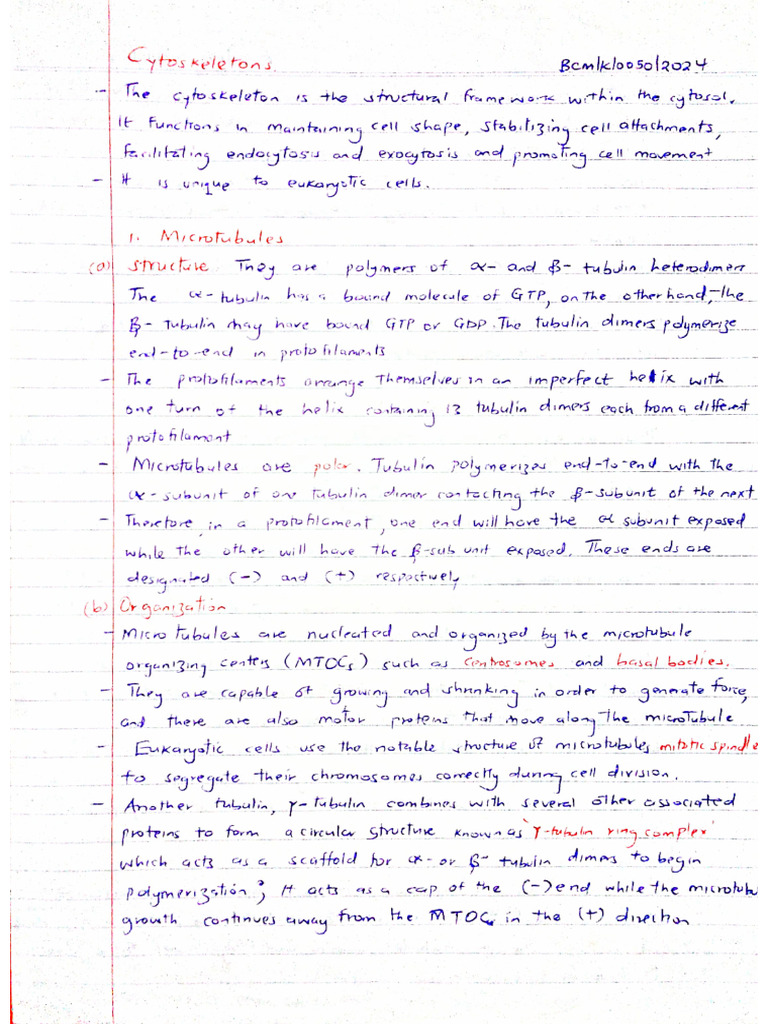 Cytoskeletons. Bcm/k/0050/2024
- The cytoskeleton is the structural framework within the cytosol.
It functions in maintaining cell shape, stabilizing cell attachments,
facilitating endocytosis and exocytosis and promoting cell movement
- It is unique to eukaryotic cells.
1. Microtubules
(a) Structure They are polymers of α- and β- tubulin heterodimers
The α-tubulin has a bound molecule of GTP, on the other hand, the
β- tubulin may have bound GTP or GDP. The tubulin dimers polymerize
end-to-end in protofilaments
- The protofilaments arrange themselves in an imperfect helix with
one turn of the helix containing 13 tubulin dimers each from a different
protofilament
- Microtubules are polar. Tubulin polymerizes end-to-end with the
α-subunit of one tubulin dimer contacting the β-subunit of the next
- Therefore, in a protofilament, one end will have the α subunit exposed
while the other will have the β-sub unit exposed. These ends are
designated (-) and (+) respectively
(b) Organization
- Microtubules are nucleated and organized by the microtubule
organizing centers (MTOCs) such as centrosomes and basal bodies.
- They are capable of growing and shrinking in order to generate force,
and there are also motor proteins that move along the microtubule
- Eukaryotic cells use the notable structure of microtubules, mitotic spindle
to segregate their chromosomes correctly during cell division.
- Another tubulin, γ-tubulin combines with several other associated
proteins to form a circular structure known as 'γ-tubulin ring complex'
which acts as a scaffold for α- or β- tubulin dimers to begin
polymerization; It acts as a cap of the (-) end while the microtubu
growth continues away from the MTOC in the (+) direction